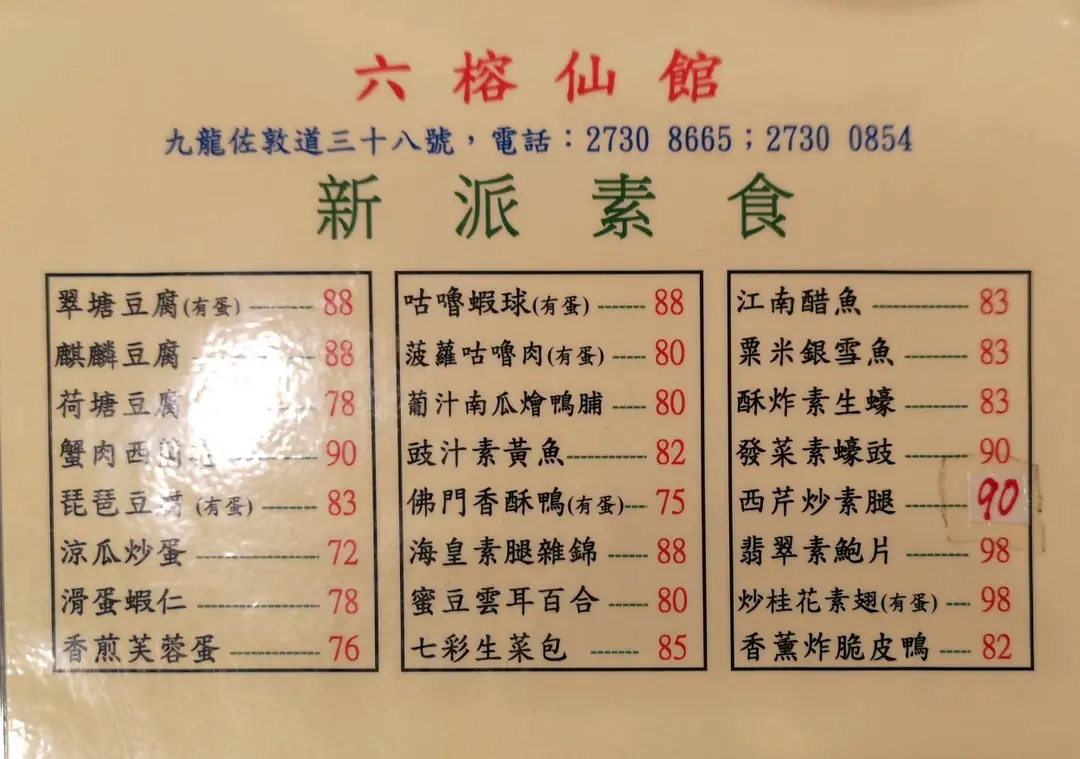 六榕仙館
九龍佐敦道三十八號，電話：2730 8665；2730 0854
新派素食
翠塘豆腐(有蛋) 88
麒麟豆腐 88
荷塘豆腐 78
蟹肉西蘭花 90
琵琶豆腐(有蛋) 83
涼瓜炒蛋 72
滑蛋蝦仁 78
香煎芙蓉蛋 76
咕嚕蝦球(有蛋) 88
菠蘿咕嚕肉(有蛋) 80
葡汁南瓜燴鴨脯 80
豉汁素黃魚 82
佛門香酥鴨(有蛋) 75
海皇素腿雜錦 88
蜜豆雲耳百合 80
七彩生菜包 85
江南醋魚 83
粟米銀雪魚 83
酥炸素生蠔 83
發菜素蠔豉 90
西芹炒素腿 90
翡翠素鮑片 98
炒桂花素翅(有蛋) 98
香薰炸脆皮鴨 82